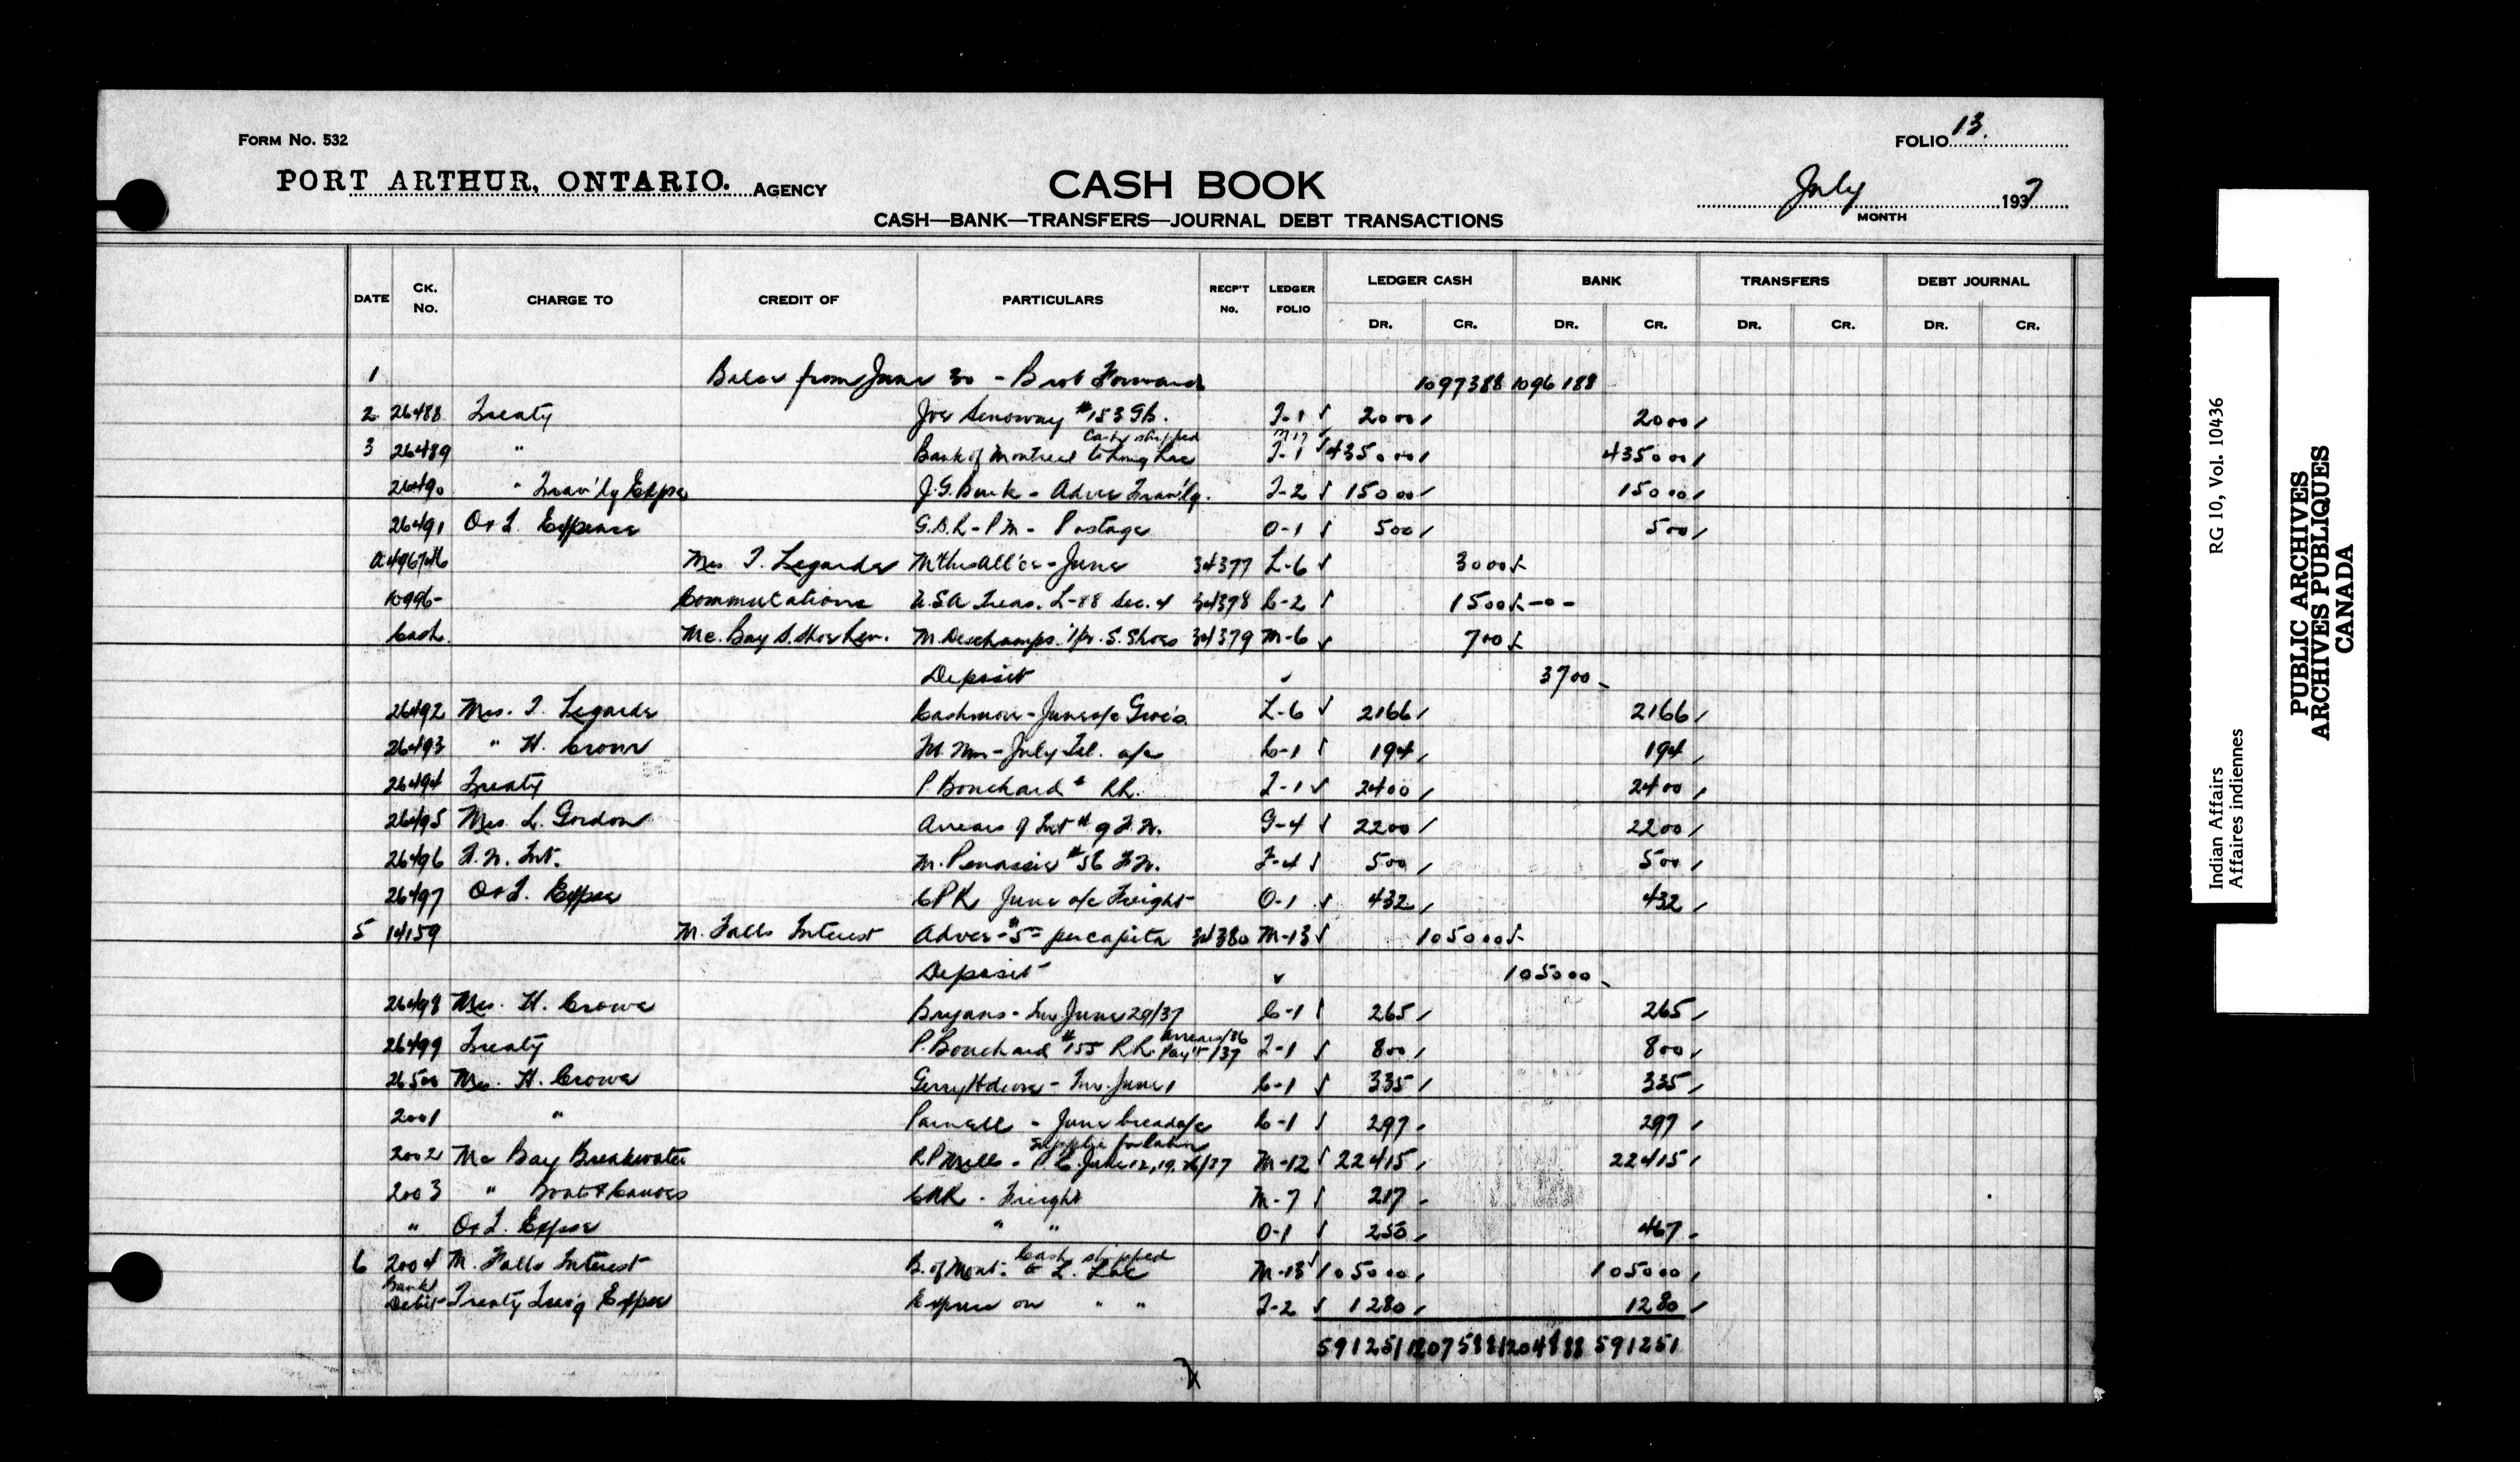 FORM NO. 532
FOLIO 13.
PORT ARTHUR, ONTARIO. AGENCY
CASH BOOK
July 1937
MONTH
CASH—BANK—TRANSFERS—JOURNAL DEBT TRANSACTIONS
DATE CK. No. CHARGE TO CREDIT OF PARTICULARS RECP'T No. LEDGER FOLIO LEDGER CASH BANK TRANSFERS DEBT JOURNAL
DR. CR. DR. CR. DR. CR. DR. CR.
1 from June 30 - Brot Forward 1097388 1096188
2 26488 Treaty Joe #153 GB. T-1 2000 2000
3 26489 " Bank of Montreal Cash shipped to Long Lac M 17 T-1 435000 435000
26490 " Trav'lg Expse J.G. Burk - Advce Trav'lg. T-2 15000 15000
26491 O+T. Expense G.B.R - PM - Postage O-1 500 500
Mrs. T. Legarde M'ths All'ce - June 34377 L-6 3000
10996- Commutations U.S.A Treas. L-88 Sec. 4 34378 C-2 1500 -0-
Cash. Mc. Bay S. Shoe M. Deschamps. 1 pr. S. Shoes 34379 M-6 700
Deposit 3700
26492 Mrs. T. Legarde Cashmore - June a/c Groc's L-6 2166 2166
26493 " H. Crowe - July Tel. a/c C-1 194 194
26494 Treaty P. Bouchard # RR. T-1 2400 2400
26495 Mrs. L. Gordon Arrears of Int # 9 F.W. G-4 2200 2200
26496 F.W. Int. M. Penassie #56 F.W. F-4 500 500
26497 O+T. Expse CPR June a/c Freight O-1 432 432
5 14159 M. Falls Interest Advce - $5= per capita 34380 M-13 105000
Deposit 105000
26498 Mrs. H. Crowe Bryans - Inv June 29/37 C-1 265 265
26499 Treaty P. Bouchard #155 RR. Arrears/36 Pay't/37 T-1 800 800
26500 Mrs. H. Crowe - Inv. June 1 C-1 335 335
2001 " Parnell - June bread a/c C-1 297 297
2002 Mc Bay Breakwater RP Mills - June 12, 19, 26/37 M-12 22415 22415
2003 " Boat & Canoes CNR - Freight M-7 217
" O+T. Expse " " O-1 250 467
6 2004 M. Falls Interest B. of Mont. Cash shipped to L. Lac M-13 105000 105000
Bank Debit - Treaty Trav'g Expse Express on " " T-2 1280 1280
591251 1207588 1204888 591251
PUBLIC ARCHIVES
ARCHIVES PUBLIQUES
CANADA
Indian Affairs RG 10, Vol. 10436
Affaires indiennes